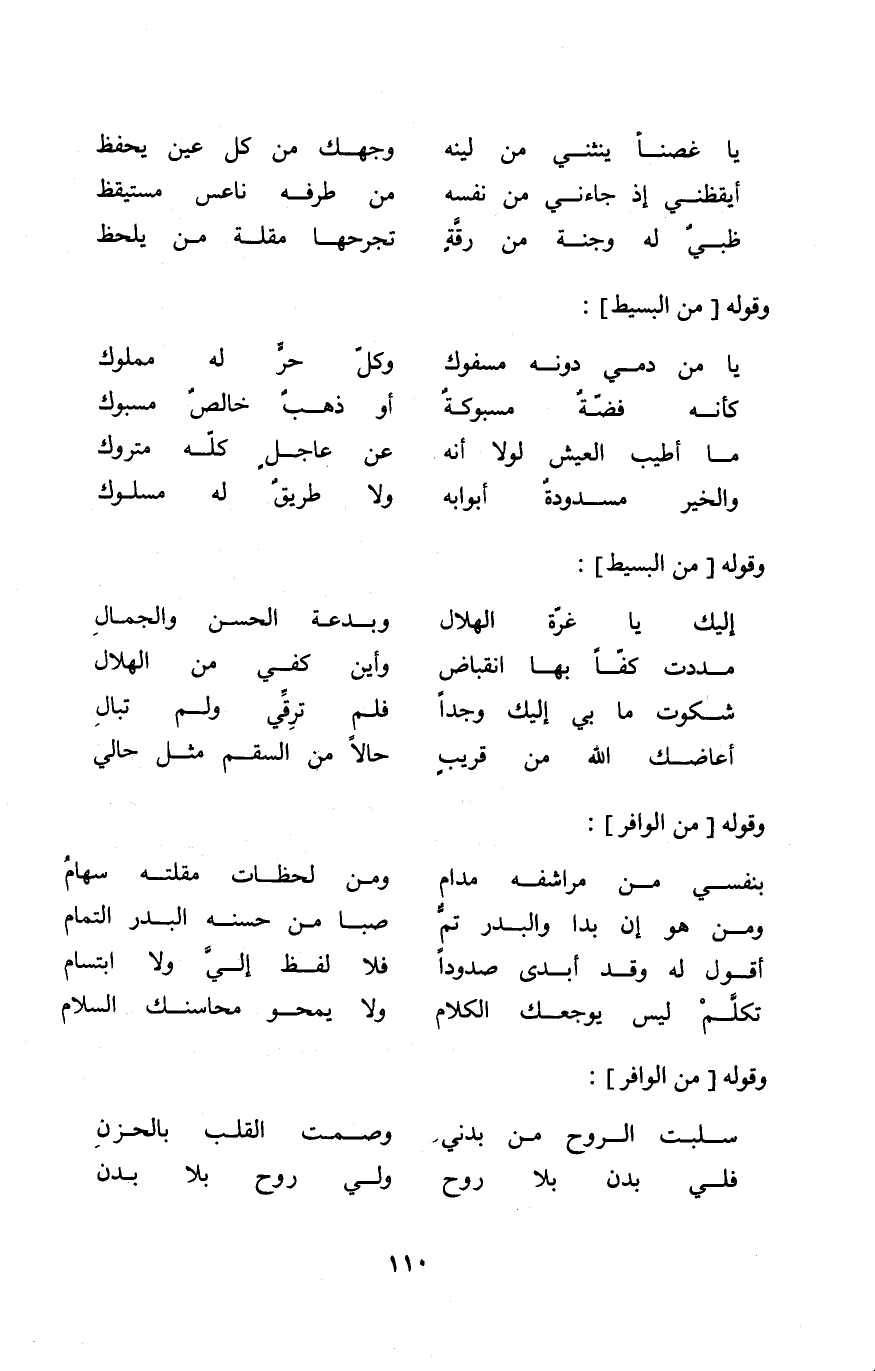 يا غصنـاً ينثنـي من لينه وجهـك من كل عين يحفظ
أيقظنـي إذ جاءنـي من نفسه من طرفـه ناعس مستيقظ
ظبـيٌ له وجنـة من رقَّةٍ تجرحهـا مقلـة مـن يلحظ
وقوله [ من البسيط ] :
يا من دمـي دونـه مسفوك وكلّ حرٍّ له مملوك
كأنـه فضّـةٌ مسبوكـةٌ أو ذهـبٌ خالصٌ مسبوك
مـا أطيب العيش لولا أنه عن عاجـلٍ كلّـه متروك
والخير مسـدودةٌ أبوابه ولا طريقٌ له مسلـوك
وقوله [ من البسيط ] :
إليك يا غرّة الهلال وبـدعة الحسـن والجمـالِ
مـددت كفّـاً بهـا انقباض وأين كفـي من الهلال
شـكوت ما بي إليك وجداً فلـم ترِقِّي ولـم تبالِ
أعاضـك الله من قريبٍ حالاً من السقـم مثـل حالي
وقوله [ من الوافر ] :
بنفسـي مـن مراشفـه مدام ومـن لحظـات مقلتـه سهامُ
ومـن هو إن بدا والبـدر تمٌّ صبـا مـن حسنـه البـدر التمام
أقـول له وقـد أبـدى صدوداً فلا لفـظ إلـيَّ ولا ابتسام
تكلَّـمْ ليس يوجعـك الكلام ولا يمحـو محاسنـك السلام
وقوله [ من الوافر ] :
سـلبت الـروح مـن بدني وصـمت القلب بالحـزنِ
فلـي بدن بلا روح ولـي روح بلا بـدن
١١٠